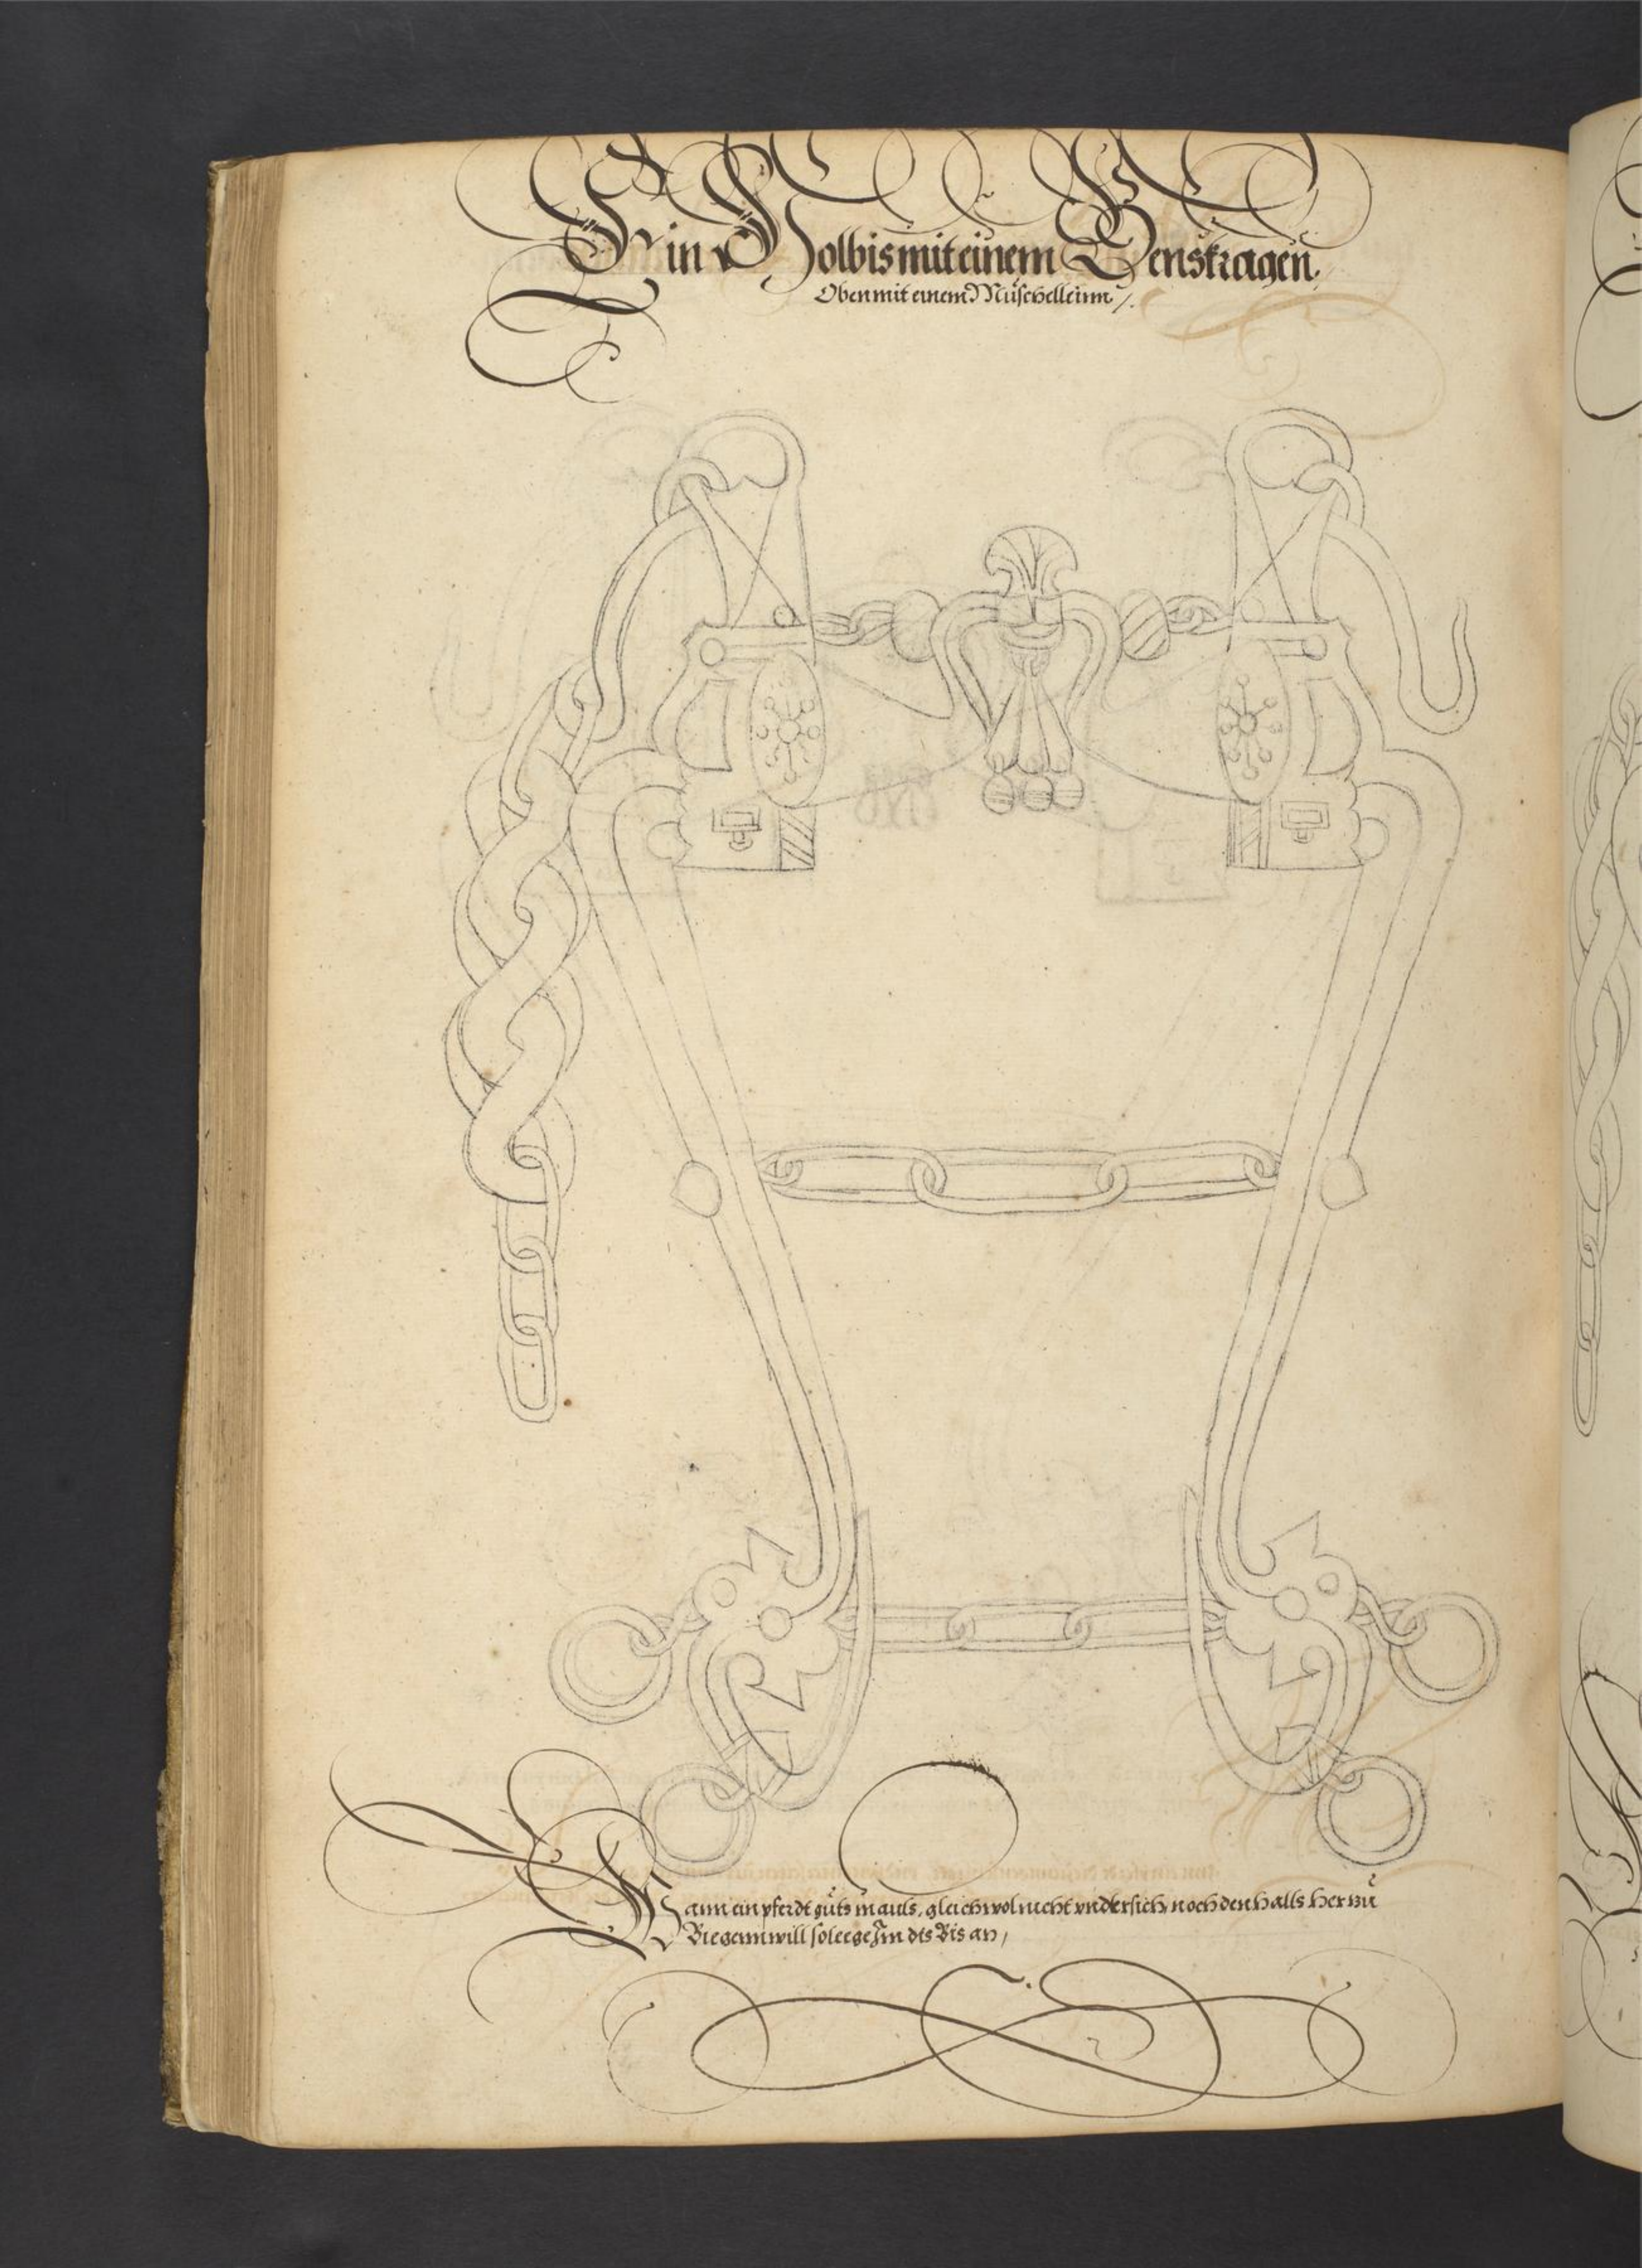 Ein Holbis mit einem Genskragen,
Oben mit einem Müschelleinn /.
Wann ein pferdt güts mauls, gleichwol nicht vndersich, noch den halls herzü
Biegenn will so lege Jm dis Bis an /